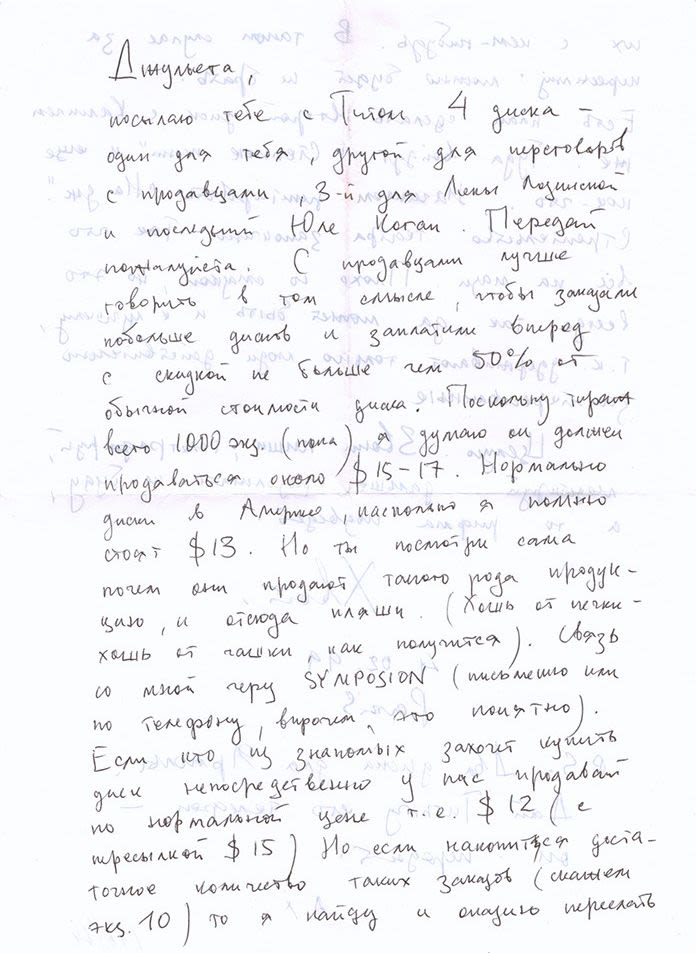 Джульета,
посылаю тебе с Питом 4 диска –
один для тебя, другой для переговоров
с продавцами, 3-й для Лены Лозинской
и последний Юле Коган. Передай
пожалуйста. С продавцами лучше
говорить в том смысле, чтобы заказали
побольше дисков и заплатили вперед
с скидкой не больше чем 50% от
обычной стоимости диска. Поскольку тираж
всего 1000 экз. (пока) я думаю он должен
продаваться около $15–17. Нормально
диски в Америке, насколько я помню
стоят $13. Но ты посмотри сама
почем они продают такого рода продук-
цию, и отсюда пляши. (Хошь от печки –
хошь от чашки, как получится). Связь
со мной через SYMPOSION (письменно или
по телефону, впрочем, это понятно).
Если кто из знакомых захочет купить
диск непосредственно у нас продавай
по нормальной цене т.е. $12 (с
пересылкой $15) Но если накопится доста-
точное количество таких заказов (скажем
экз. 10) то я найду и оказию переслать